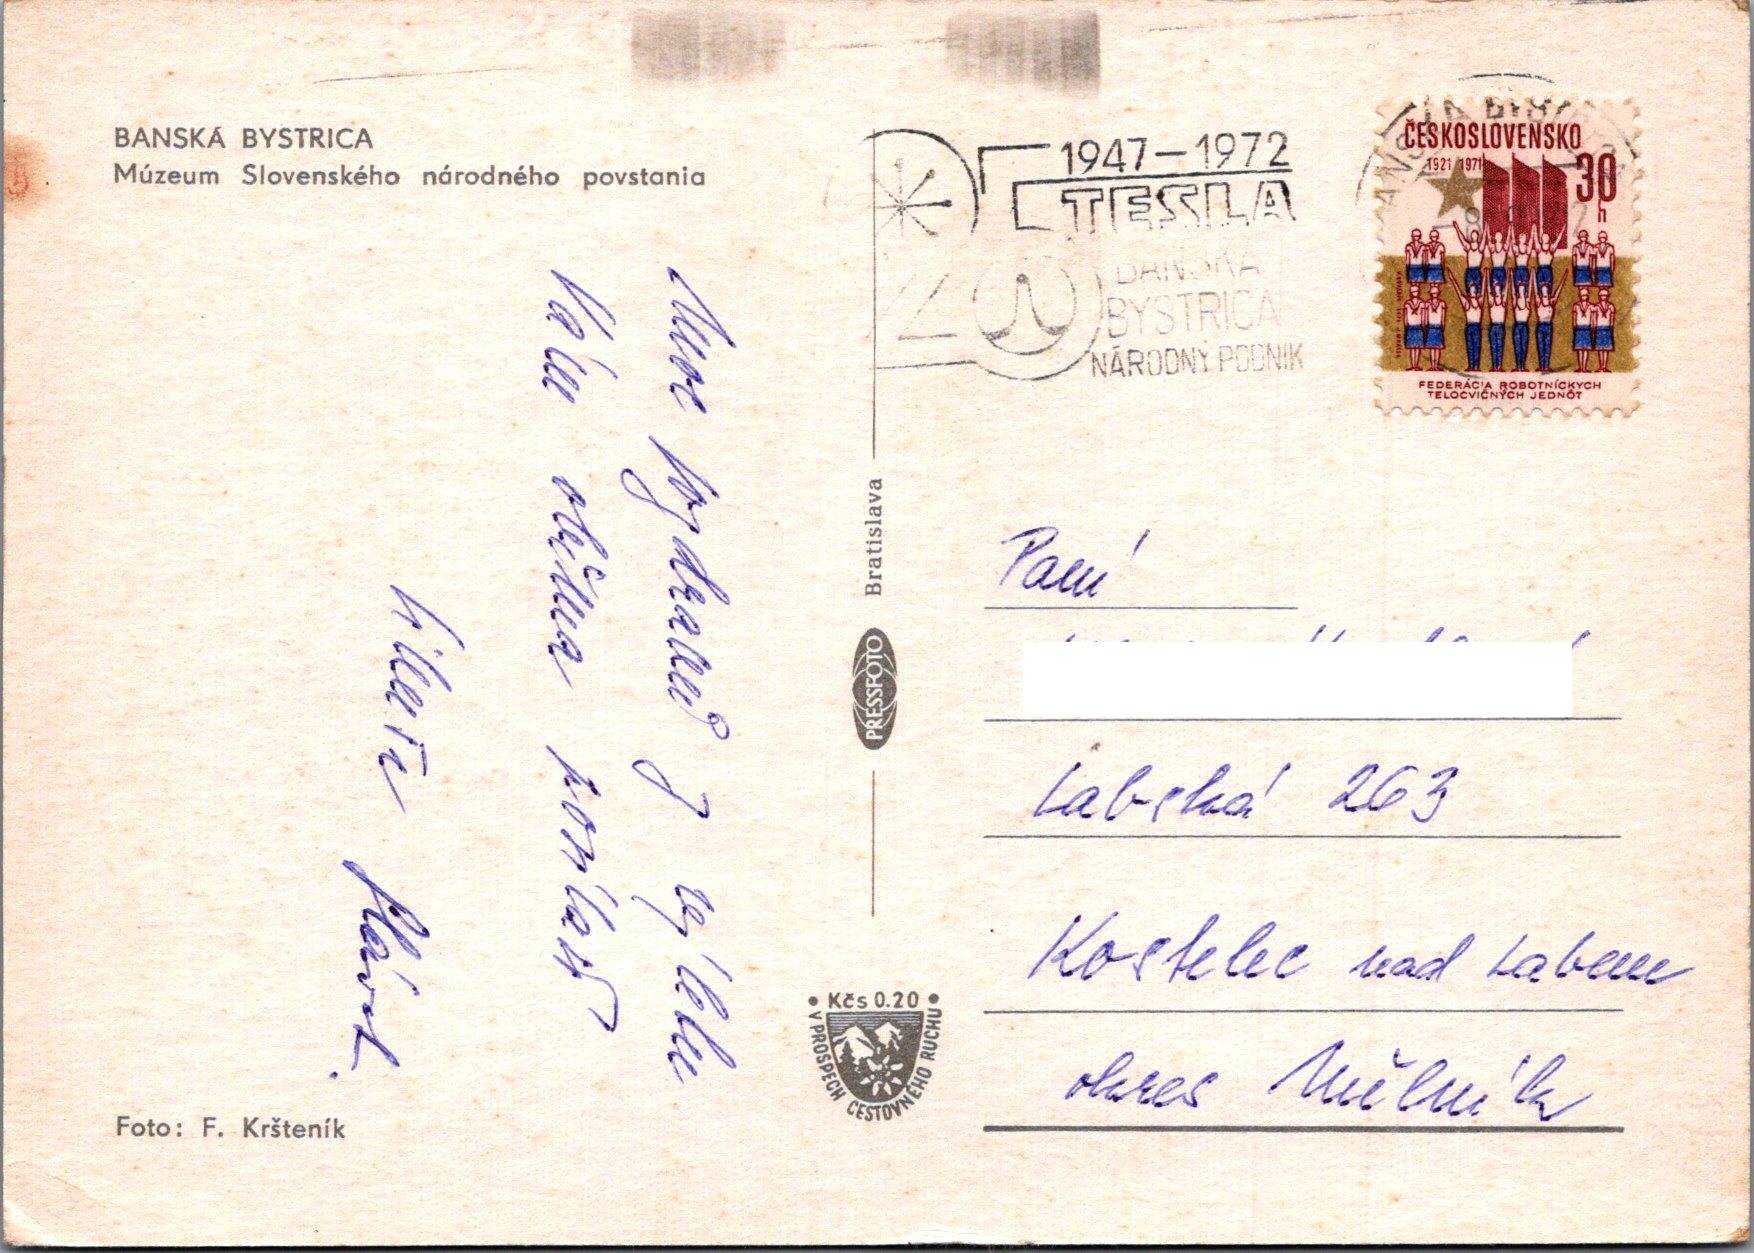 BANSKÁ BYSTRICA
Múzeum Slovenského národného povstania
Mnoho pozdravů z výletu
Vám všema posílají
Vileti
Foto: F. Kršteník
Bratislava
PRESSFOTO
• Kčs 0.20 •
V PROSPECH CESTOVNÉHO RUCHU
1947–1972
TESLA
BANSKÁ
BYSTRICA
NÁRODNÝ PODNIK
BANSKÁ BYSTRICA
ČESKOSLOVENSKO
1921 1971
30
h
FEDERÁCIA ROBOTNÍCKYCH
TELOCVIČNÝCH JEDNÔT
Paní
Labská 263
Kostelec nad Labem
okres Mělník